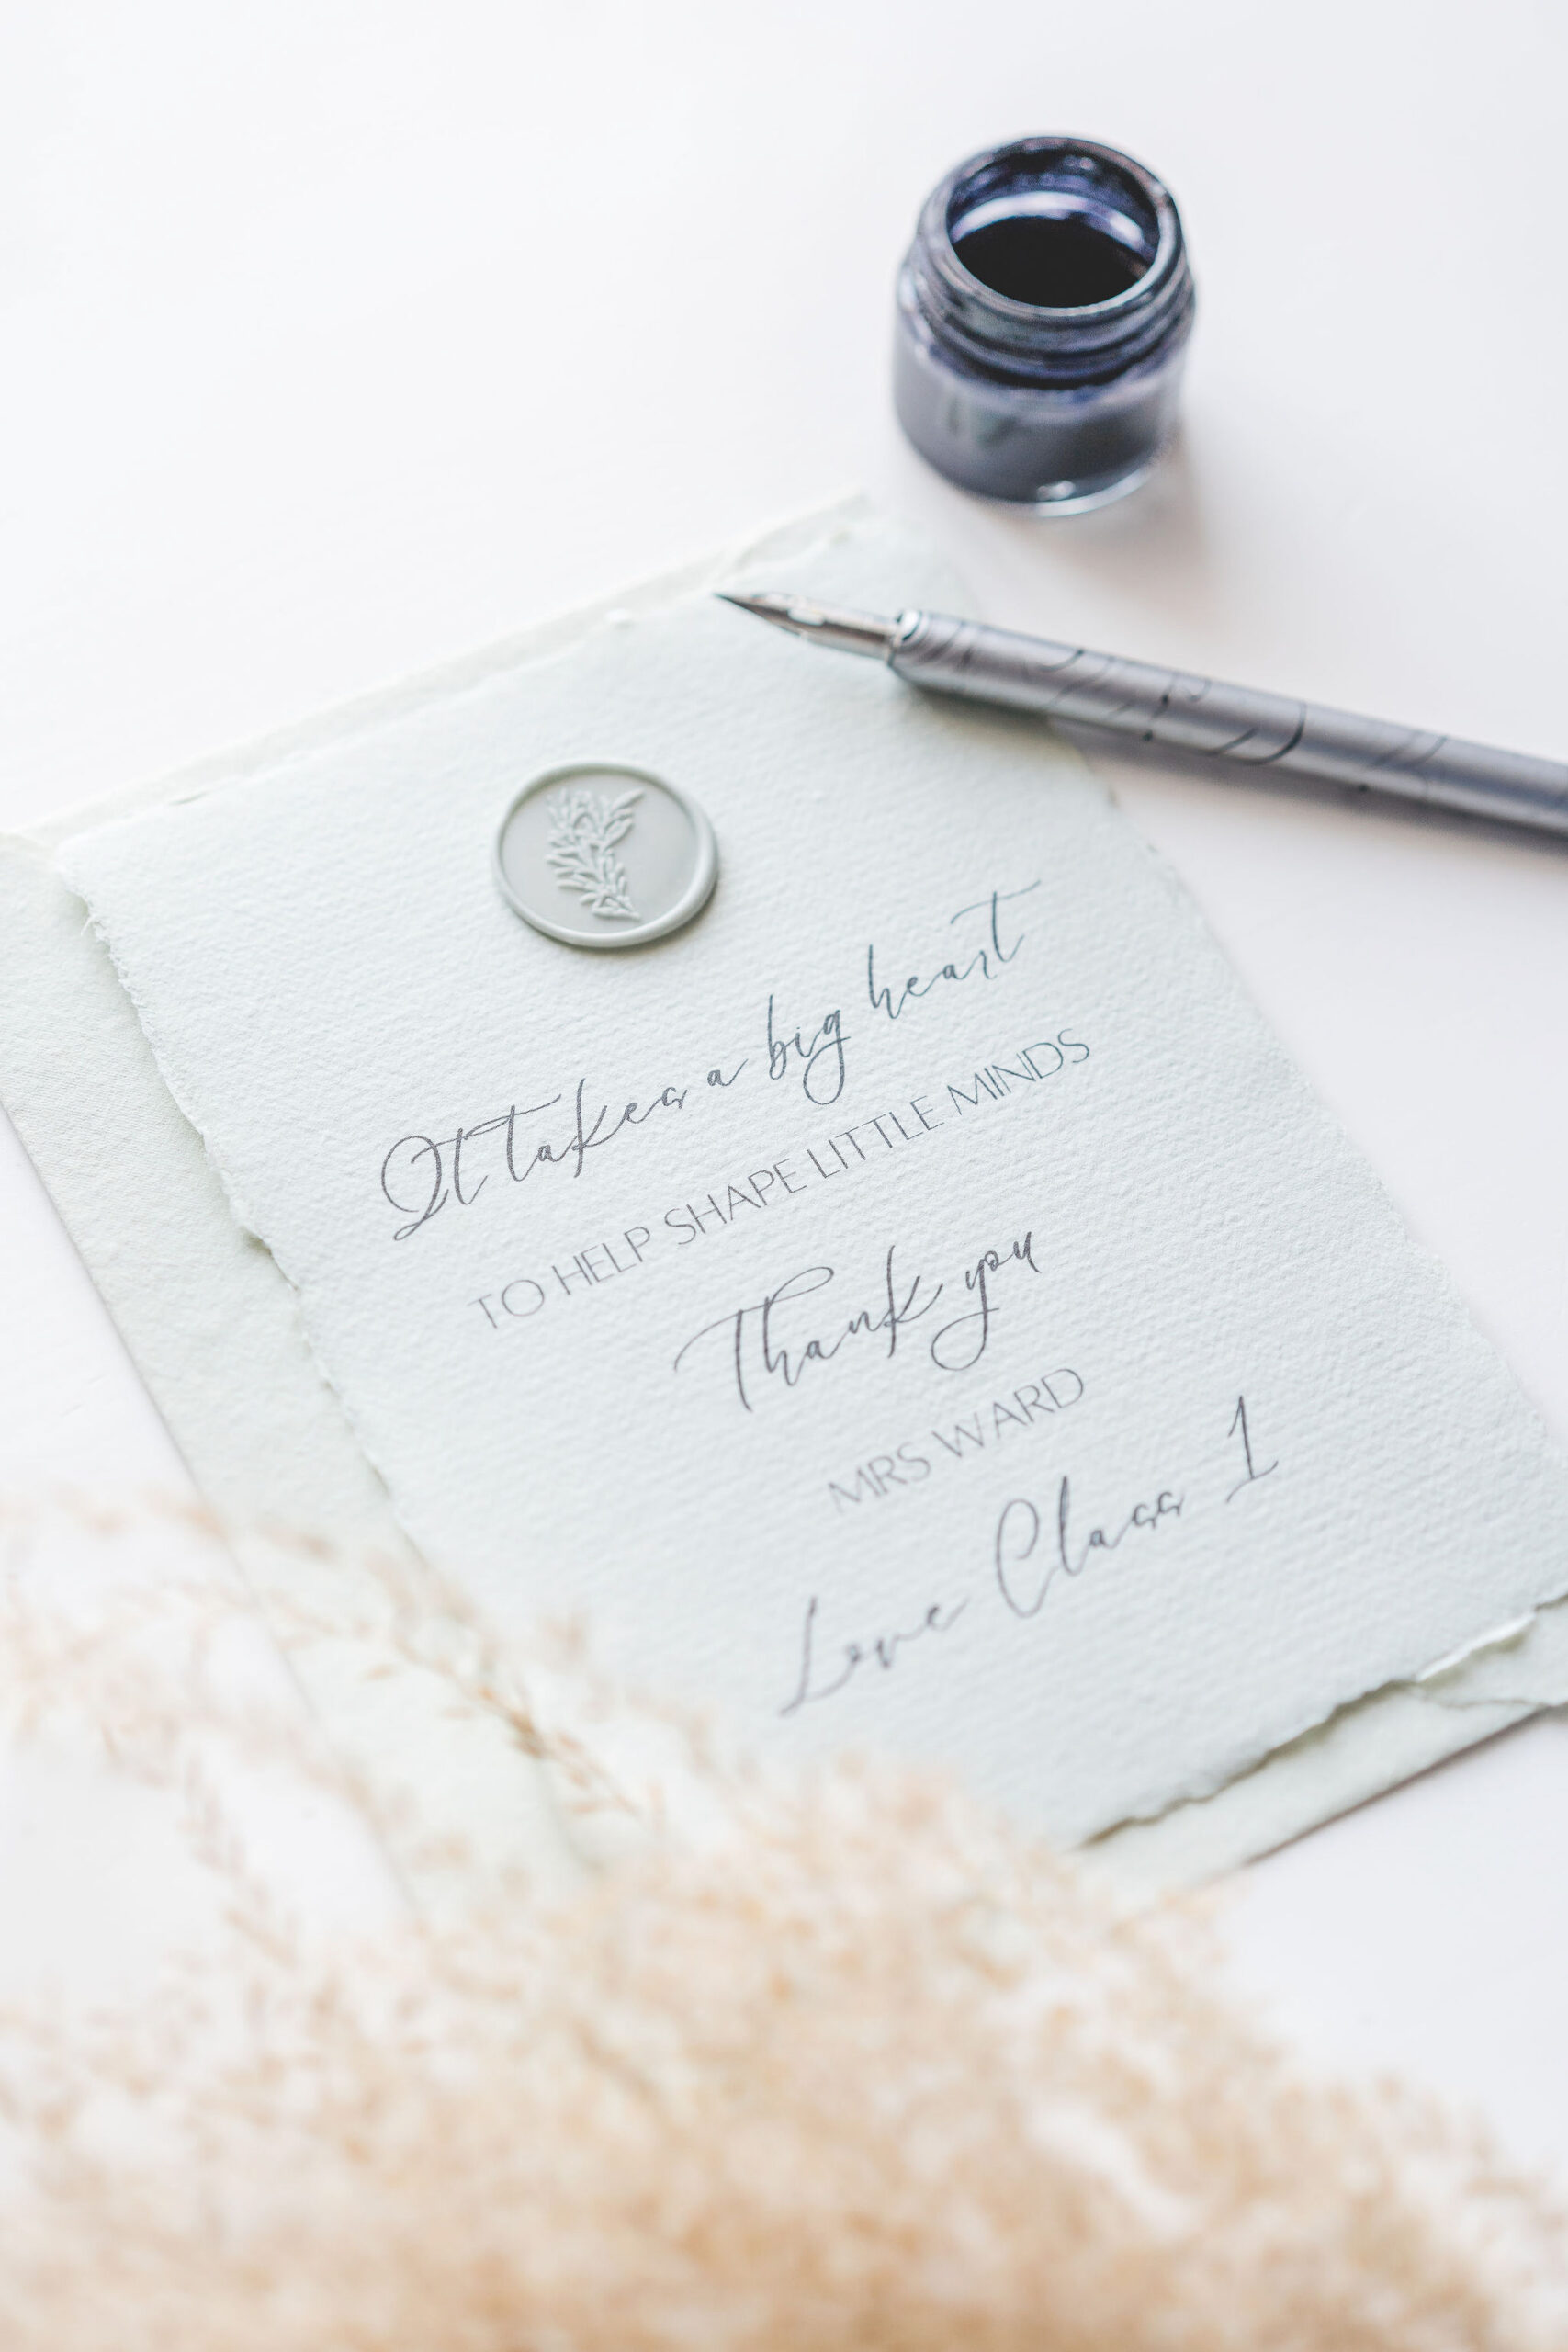 It takes a big heart
TO HELP SHAPE LITTLE MINDS
Thank you
MRS WARD
Love Class 1